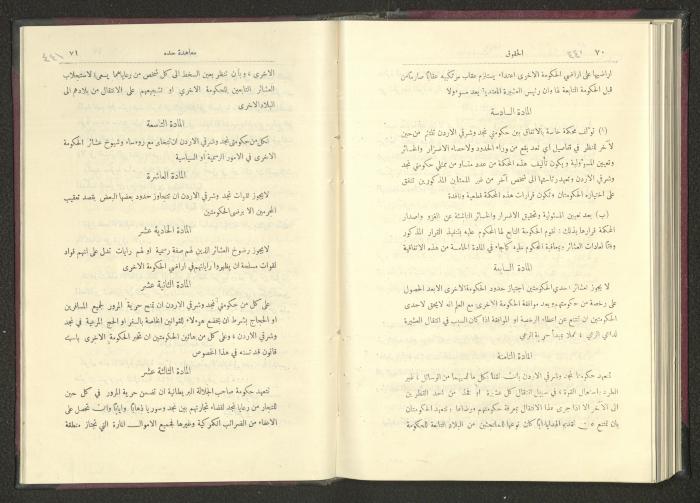 ٧٠
الحقوق
اراضيها على اراضي الحكومة الاخرى اعتداء يستلزم عقاب مرتكبيه عقاباً صارماً من
قبل الحكومة التابعة لها وان رئيس العشيرة المعتدية يعد مسؤولا
المادة السادسة
(١) تؤلف محكمة خاصة بالاتفاق بين حكومتي نجد وشرقي الاردن تلتئم من حين
لآخر للنظر في تفاصيل اي تعد يقع من وراء الحدود ولاحصاء الاضرار والخسائر
وتعيين المسؤولية ويكون تأليف هذه المحكمة من عدد متساو من ممثلي حكومتي نجد
وشرقي الاردن وتعهد رئاستها الى شخص آخر من غير الممثلين المذكورين تتفق
على اختياره الحكومتان وتكون قرارات هذه المحكمة قطعية ونافذة
(ب) بعد تعيين المسئولية وتحقيق الاضرار والخسائر الناشئة عن الغزو واصدار
المحكمة قرارها بذلك : تقوم الحكومة التابع لها المحكوم عليه بتنفيذ القرار المذكور
وفقاً لعادات العشائر وبمعاقبة المحكوم عليه كما جاء في المادة الخامسة من هذه الاتفاقية
المادة السابعة
لا يجوز لعشائر احدى الحكومتين اجتياز حدود الحكومة الاخرى الا بعد الحصول
على رخصة من حكومتهم وبعد موافقة الحكومة الاخرى مع العلم انه لا يحق لاحدى
الحكومتين ان تمتنع عن اعطاء الرخصة او الموافقة اذا كان السبب في انتقال العشيرة
لداعي الرعي ، عملا بمبدأ حرية الرعي
المادة الثامنة
تتعهد حكومتا نجد وشرقي الاردن بان تقفا بكل ما لديهما من الوسائل ، غير
الطرد واستعمال القوة ، في سبيل انتقال كل عشيرة او فخذ من احد القطرين
الى الآخر الا اذا جرى هذا الانتقال بمعرفة حكومتهم ورضاها ، وتتعهد الحكومتان
بان تمتنع عن تقديم الهدايا ايا كان نوعها للملتجئين من البلاد التابعة للحكومة
معاهدة حده
٧١
الاخرى ، وبأن تنظر بعين السخط الى كل شخص من رعاياهما يسعى لاستجلاب
العشائر التابعين للحكومة الاخرى او تشجيعهم على الانتقال من بلادهم الى
البلاد الاخرى
المادة التاسعة
ليس لحكومتي نجد وشرقي الاردن ان تتخابر مع رؤساء وشيوخ عشائر الحكومة
الاخرى في الامور الرسمية او السياسية
المادة العاشرة
لا يجوز لقوات نجد وشرقي الاردن ان تتجاوز حدود بعضها البعض بقصد تعقيب
المجرمين الا برضى الحكومتين
المادة الحادية عشر
لا يجوز لشيوخ العشائر الذين لهم صفة رسمية او لهم رايات تدل على انهم قواد
لقوات مسلحة ان يظهروا راياتهم في اراضي الحكومة الاخرى
المادة الثانية عشر
على كل من حكومتي نجد وشرقي الاردن ان تمنح حرية المرور لجميع المسافرين
او الحجاج بشرط ان يخضع هؤلاء للقوانين الخاصة بالسفر او الحج المرعية في نجد
وشرقي الاردن ، وعلى كل من هاتين الحكومتين ان تخبر الحكومة الاخرى باسيـ
قانون قد تسنه في هذا الخصوص
المادة الثالثة عشر
تتعهد حكومة صاحب الجلالة البريطانية ان تضمن حرية المرور في كل حين
للتجار من رعايا نجد لقضاء تجارتهم بين نجد وسوريا ذهاباً واياباً وان تحصل على
الاعفاء من الضرائب الكمركية وغيرها لجميع الاموال المارة التي تجتاز منطقة